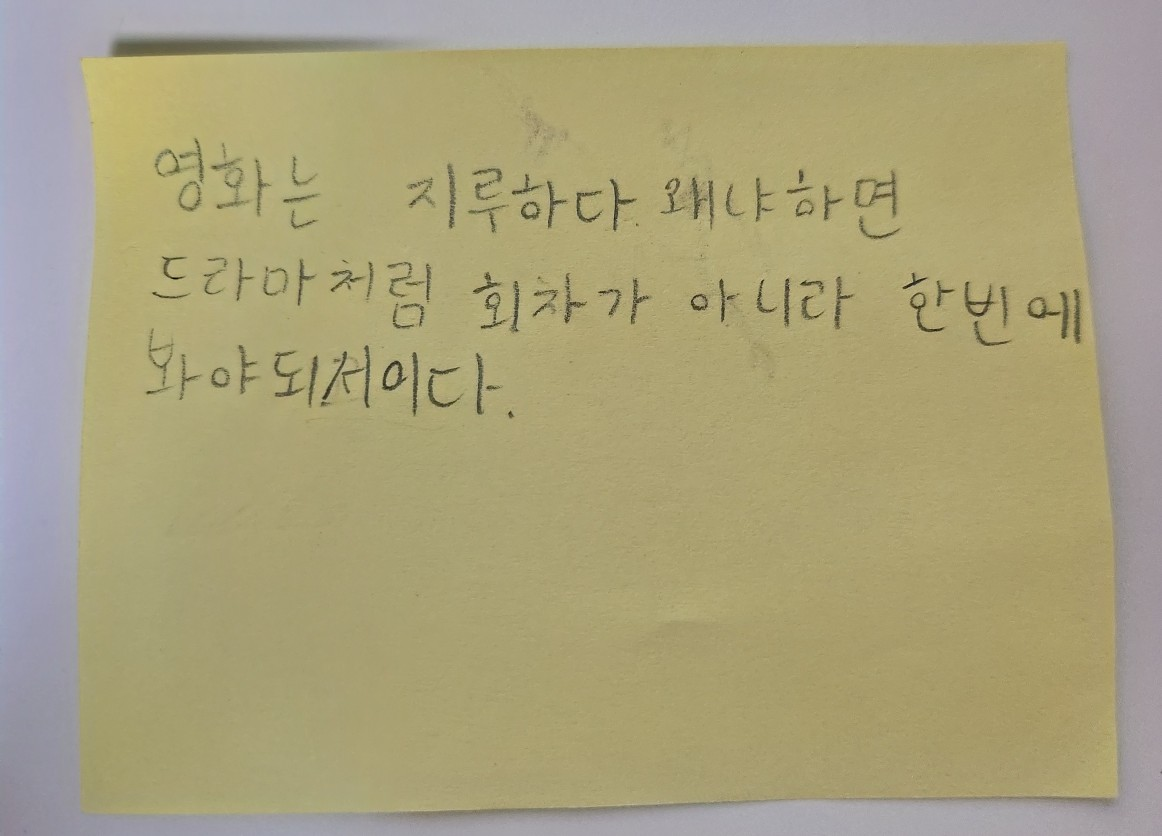 영화는 지루하다. 왜냐하면
드라마처럼 회차가 아니라 한번에
봐야되서이다.